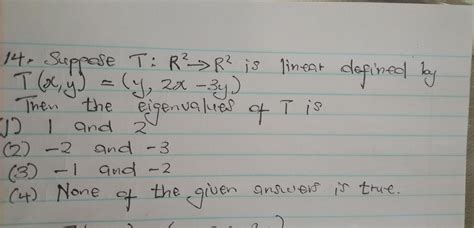 14. Suppose T: R² → R² is linear defined by
T(x, y) = (y, 2x - 3y)
Then the eigenvalues of T is
(1) 1 and 2
(2) -2 and -3
(3) -1 and -2
(4) None of the given answers is true.